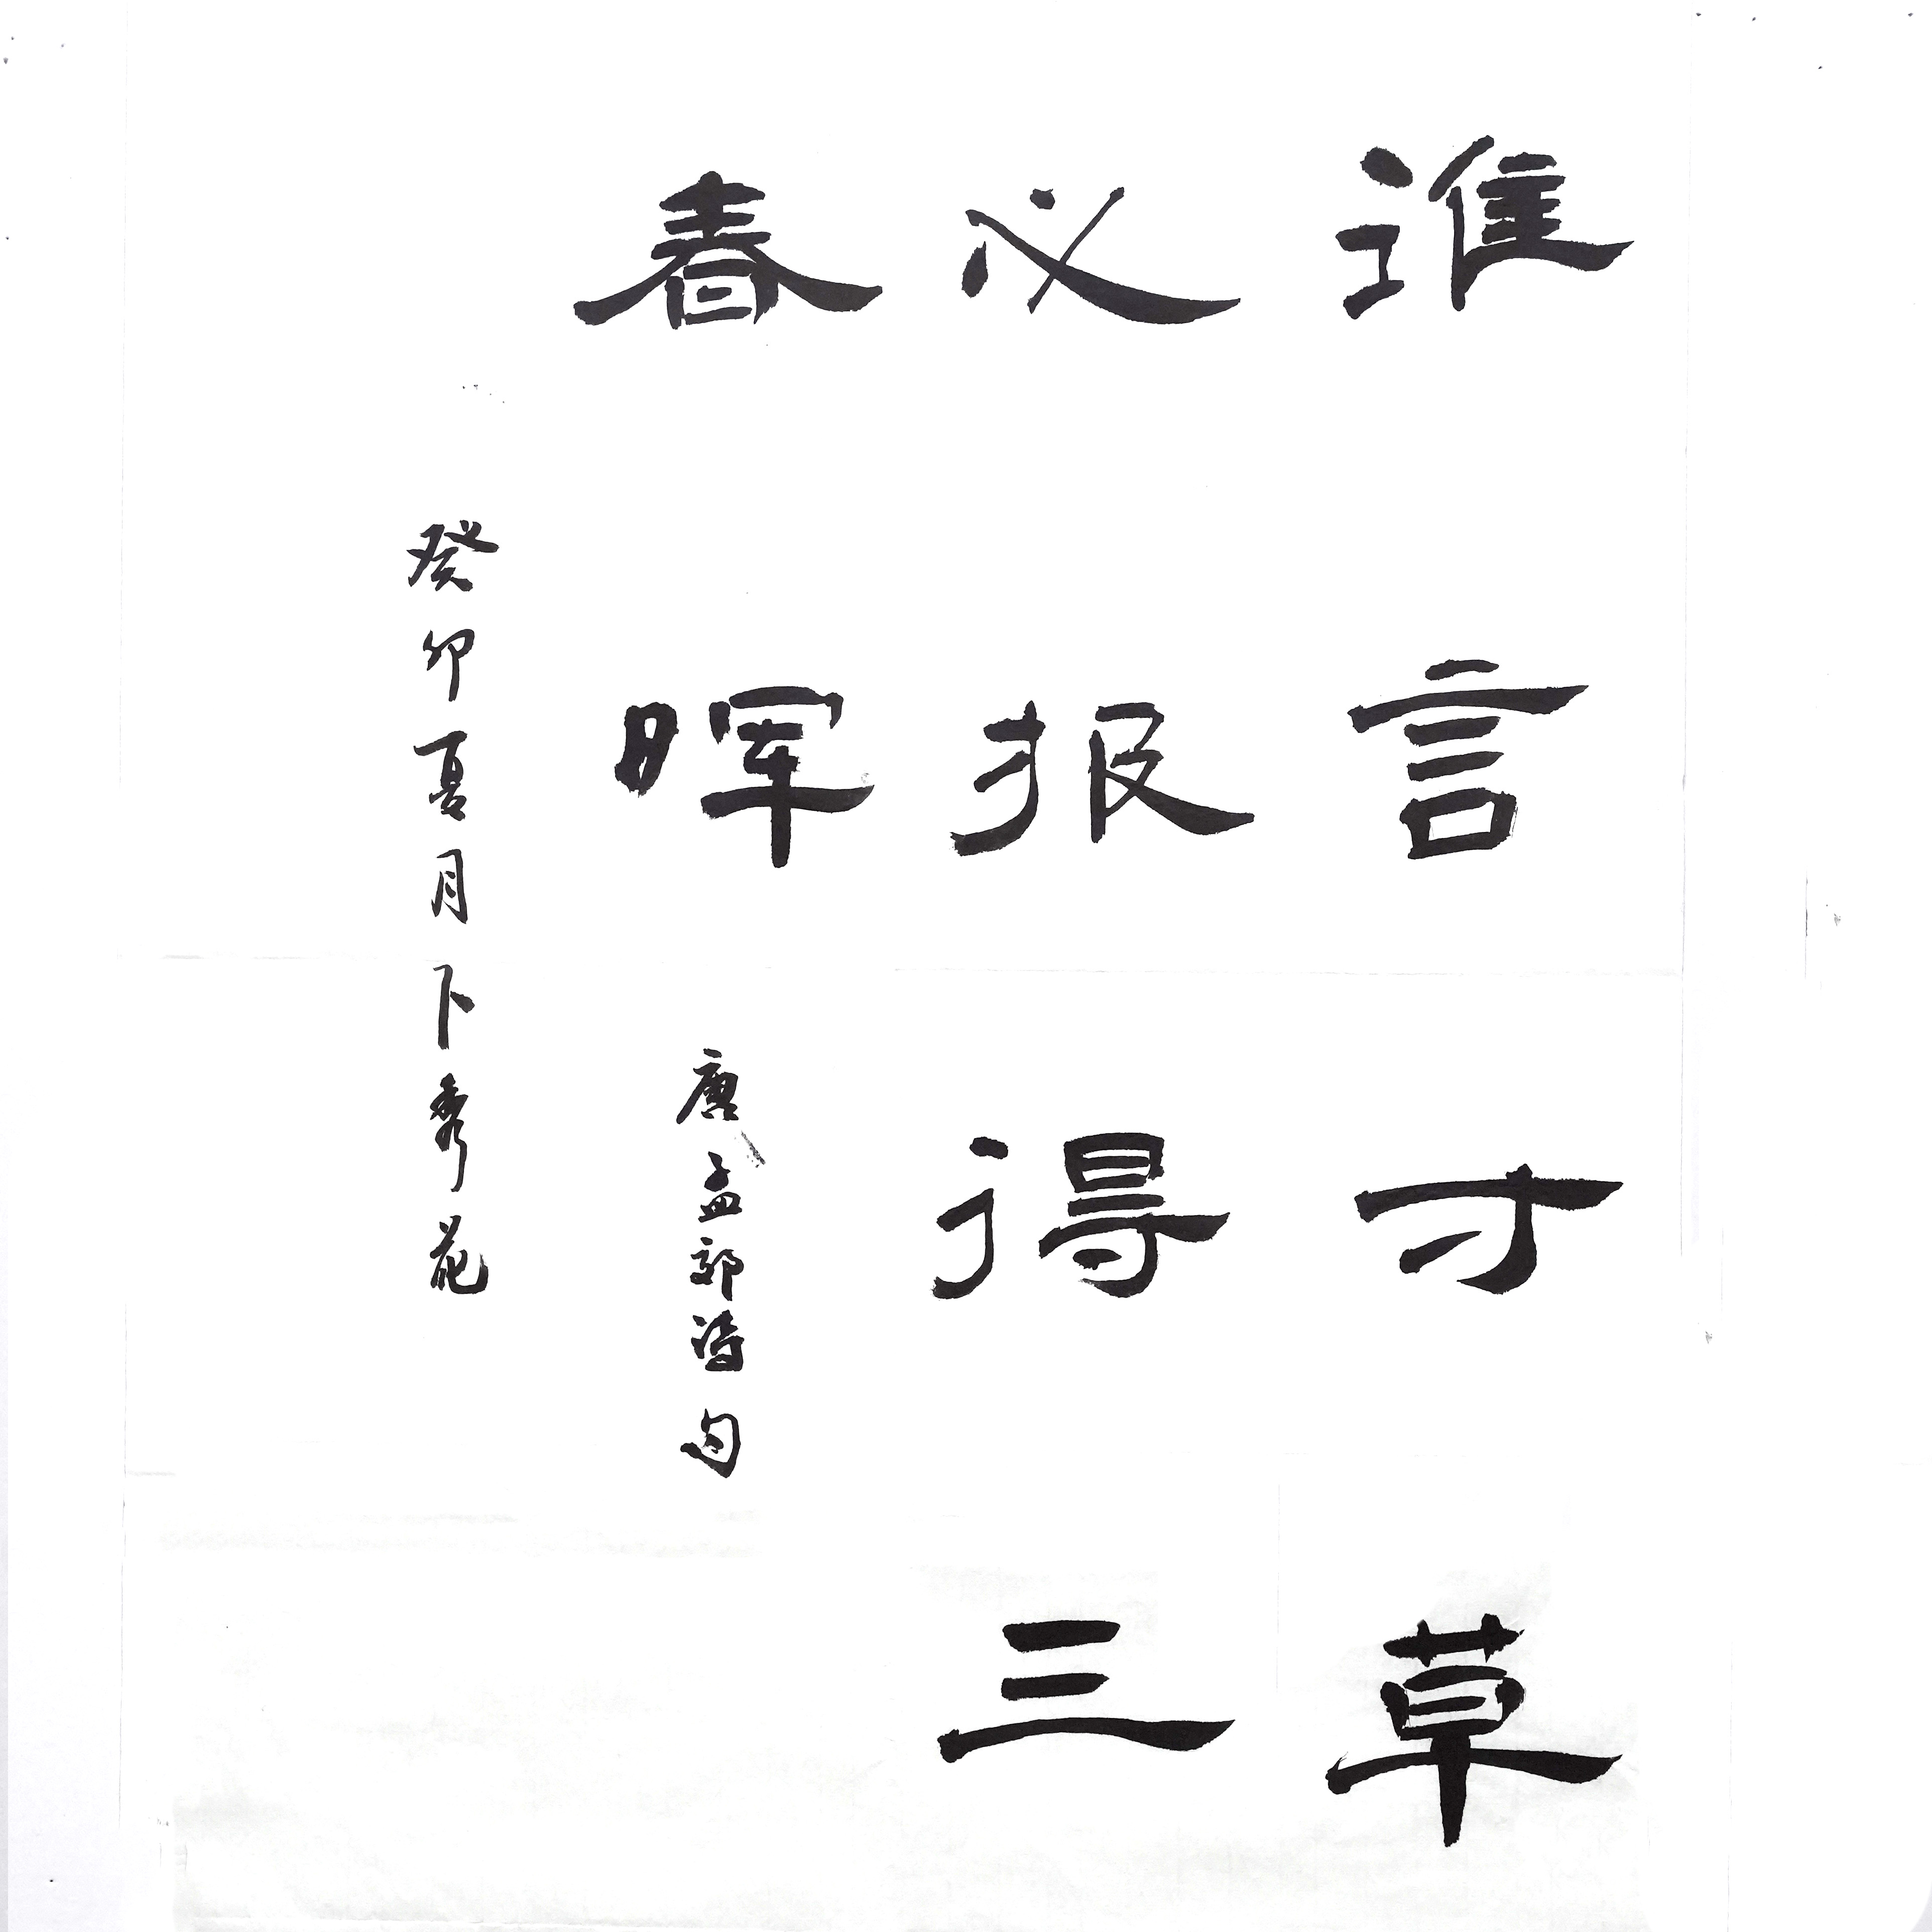 谁言寸草
心报得三
春晖
唐孟郊诗句
癸卯夏月卜秀花